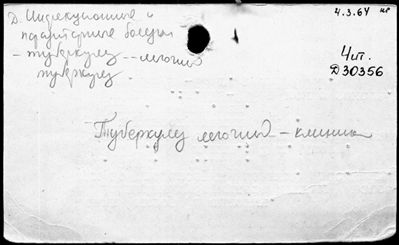 Д. Инфекционные и
паразитарные болезни
– туберкулез -- легких
туберкулез
4.3.64
Чит.
Д30356
Туберкулез легких – клиника